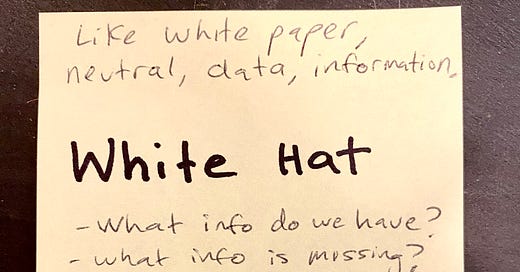 Like white paper,
neutral, data, information.
White Hat
- What info do we have?
- what info is missing?